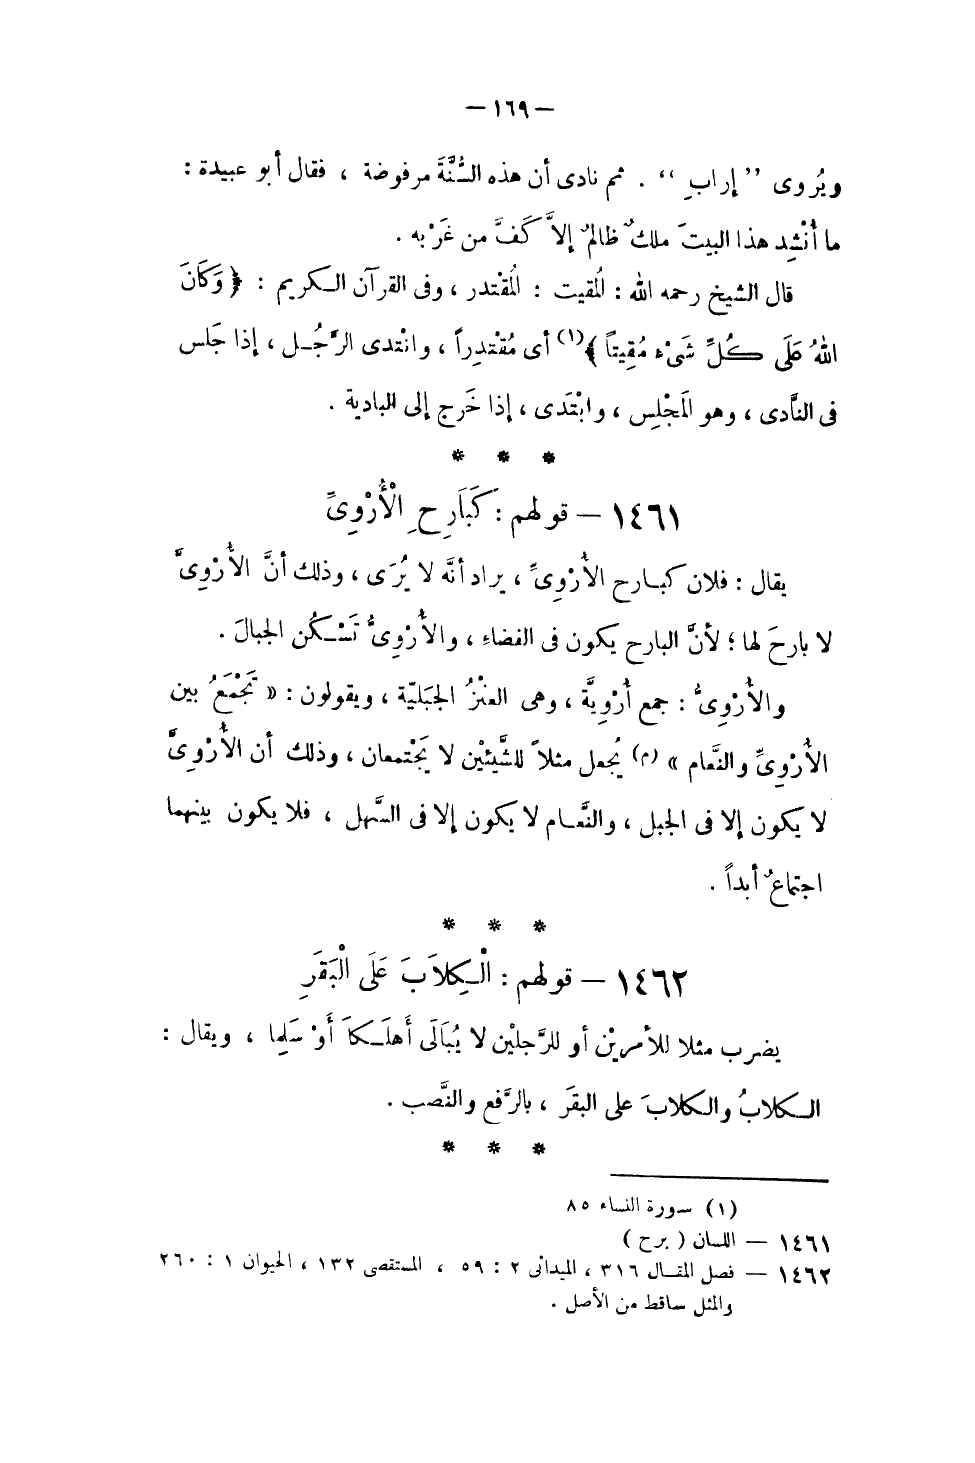 — ١٦٩ —
ويُروى ”إرابِ“ . ثم نادى أن هذه السُّنَّةَ مرفوضة ، فقال أبو عبيدة :
ما أُنْشِد هذا البيتَ ملكٌ ظالمٌ إلاَّ كَفَّ من غَرْبه .
قال الشيخ رحمه الله : المُقيت : المُقْتدر ، وفى القرآن الكريم : ﴿ وَكَانَ
اللهُ عَلَى كُلِّ شَىْءٍ مُقِيتاً ﴾(١) أى مُقْتدِراً ، وانْتدى الرَّجُل ، إذا جَلس
فى النَّادى ، وهو المَجْلِس ، وابْتَدى ، إذا خَرج إلى البادية .
* * *
١٤٦١ – قولهم : كَبَارِحِ الْأُرْوِىِّ
يقال : فلان كبارح الأُرْوِىِّ ، يراد أنَّه لا يُرَى ، وذلك أنَّ الأُرْوِىَّ
لا بارحَ لها ؛ لأنَّ البارح يكون فى الفضاء ، والأُرْوِىُّ تَسْكُن الجبالَ .
والأُرْوِىُّ : جمع أُرْوِيَّة ، وهى العنْزُ الجَبَليّة ، ويقولون : « تَجْمَعُ بين
الأُرْوِىِّ والنَّعام » (م) يُجعل مثلاً للشَّيئَيْن لا يَجْتمعان ، وذلك أن الأُرْوِىَّ
لا يكون إلا فى الجبل ، والنَّعام لا يكون إلا فى السَّهل ، فلا يكون بينهما
اجتماعٌ أبداً .
* * *
١٤٦٢ – قولهم : الْكِلاَبَ عَلَى الْبَقَرِ
يضرب مثلا للأمريْن أو للرَّجلين لا يُبَالَى أَهلَكَا أَوْ سَلِما ، ويقال :
الكلابُ والكلابَ على البقَر ، بالرَّفع والنَّصب .
* * *
(١) سورة النساء ٨٥
١٤٦١ – اللسان ( برح )
١٤٦٢ – فصل المقال ٣١٦ ، الميدانى ٢ : ٥٩ ، المستقصى ١٣٢ ، الحيوان ١ : ٢٦٠
والمثل ساقط من الأصل .